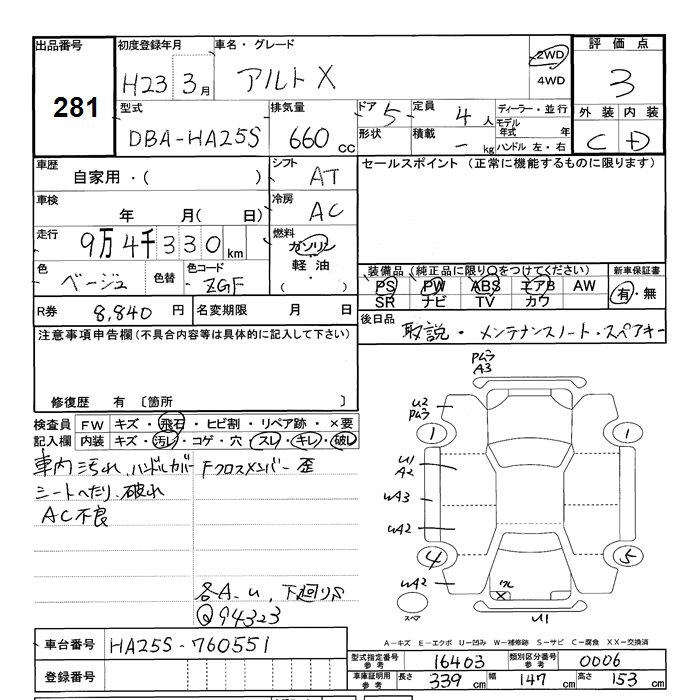 出品番号 初度登録年月 車名・グレード 2WD 評価点
281 H23 3月 アルト X 4WD 3
型式 排気量 ドア 5 定員 4人 ディーラー・並行 外装 内装
DBA-HA25S 660 cc 形状 積載 - kg モデル年式 年 ハンドル 左・右 C D
車歴 自家用・( ) シフト AT セールスポイント (正常に機能するものに限ります)
車検 年 月( 日) 冷房 AC
走行 9万4千330km 燃料 ガソリン 軽・油 ( )
色 ベージュ 色替 色コード ZGF 装備品 (純正品に限り○をつけてください) 新車保証書
PS PW ABS エアB AW 有・無
SR ナビ TV カワ
R券 8,840円 名変期限 月 日 後日品 取説・メンテナンスノート・スペアキー
注意事項申告欄(不具合内容等は具体的に記入して下さい)
修復歴 有 〔箇所 〕
検査員 FW キズ・飛石・ヒビ割・リペア跡・×要
記入欄 内装 キズ・汚レ・コゲ・穴・スレ・キレ・破レ
車内汚れ、ハンドルカバー Fクロスメンバー歪
シートへたり、破れ
AC不良
各A-U、下廻りS
Q94323
Pムラ
A3
U2
Pムラ
1 1
U1
A2
UA3
UA2
4 5
UA2
X
スペア
U1
A-キズ E-エクボ U-凹み W-補修跡 S-サビ C-腐食 XX-交換済
車台番号 HA25S-760551
型式指定番号 参考 16403 類別区分番号 参考 0006
登録番号 車庫証明用 参考 長さ 339cm 幅 147cm 高さ 153cm